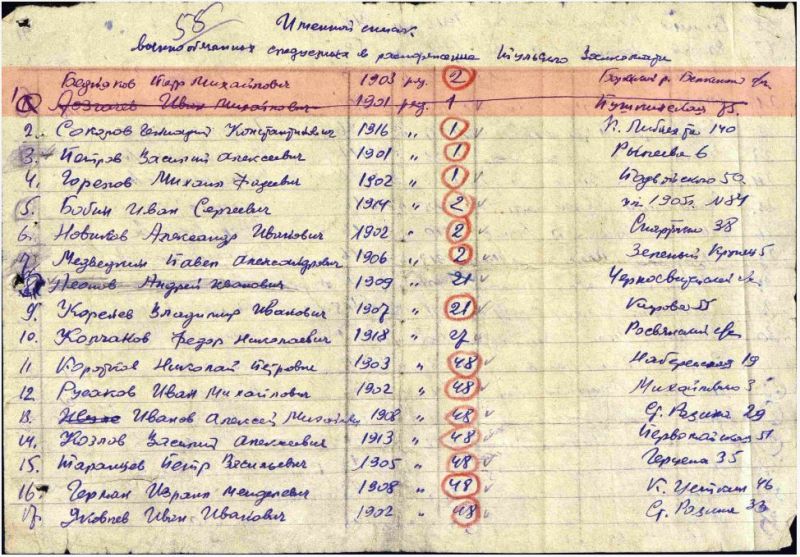 58
Именной список
военнообязанных следуемых в распоряжение Тульского Военкомата
1 Бедняков Петр Михайлович 1903 ряд. 2
Иван Михайлович 1901 ряд. 1 Пушкинская
2. Сокоров Геннадий Константинович 1916 " 1 К. Либкнехта 140
3. Петров Василий Алексеевич 1901 " 1 Рылеева 6
4. Михаил 1902 " 1 Подвойского
5. Бобин Иван Сергеевич 1914 " 2 1905г. N 84
6. Новиков Александр Иванович 1902 " 2 38
7. Медведкин Павел Александрович 1906 " 2 Зеленый 5
Леонов Андрей Иванович 1909 " 21
9. Королев Владимир Иванович 1907 " 21 Кирова
10. Колчанов Федор Николаевич 1918 "
11 Коротков Николай Петрович 1903 " 48 Набережная 19
12. Русаков Иван Михайлович 1902 " 48 3
13. Иванов Алексей 1908 " 48 Ст. Разина 29
14. Козлов Василий Алексеевич 1913 " 48 Первомайская 51
15. Таранцев Петр Васильевич 1905 " 48 Герцена 35
16. Герман Израил Менделевич 1908 " 48 К. Цеткин 46
17. Яковлев Иван Иванович 1902 " 48 Ст. Разина 33